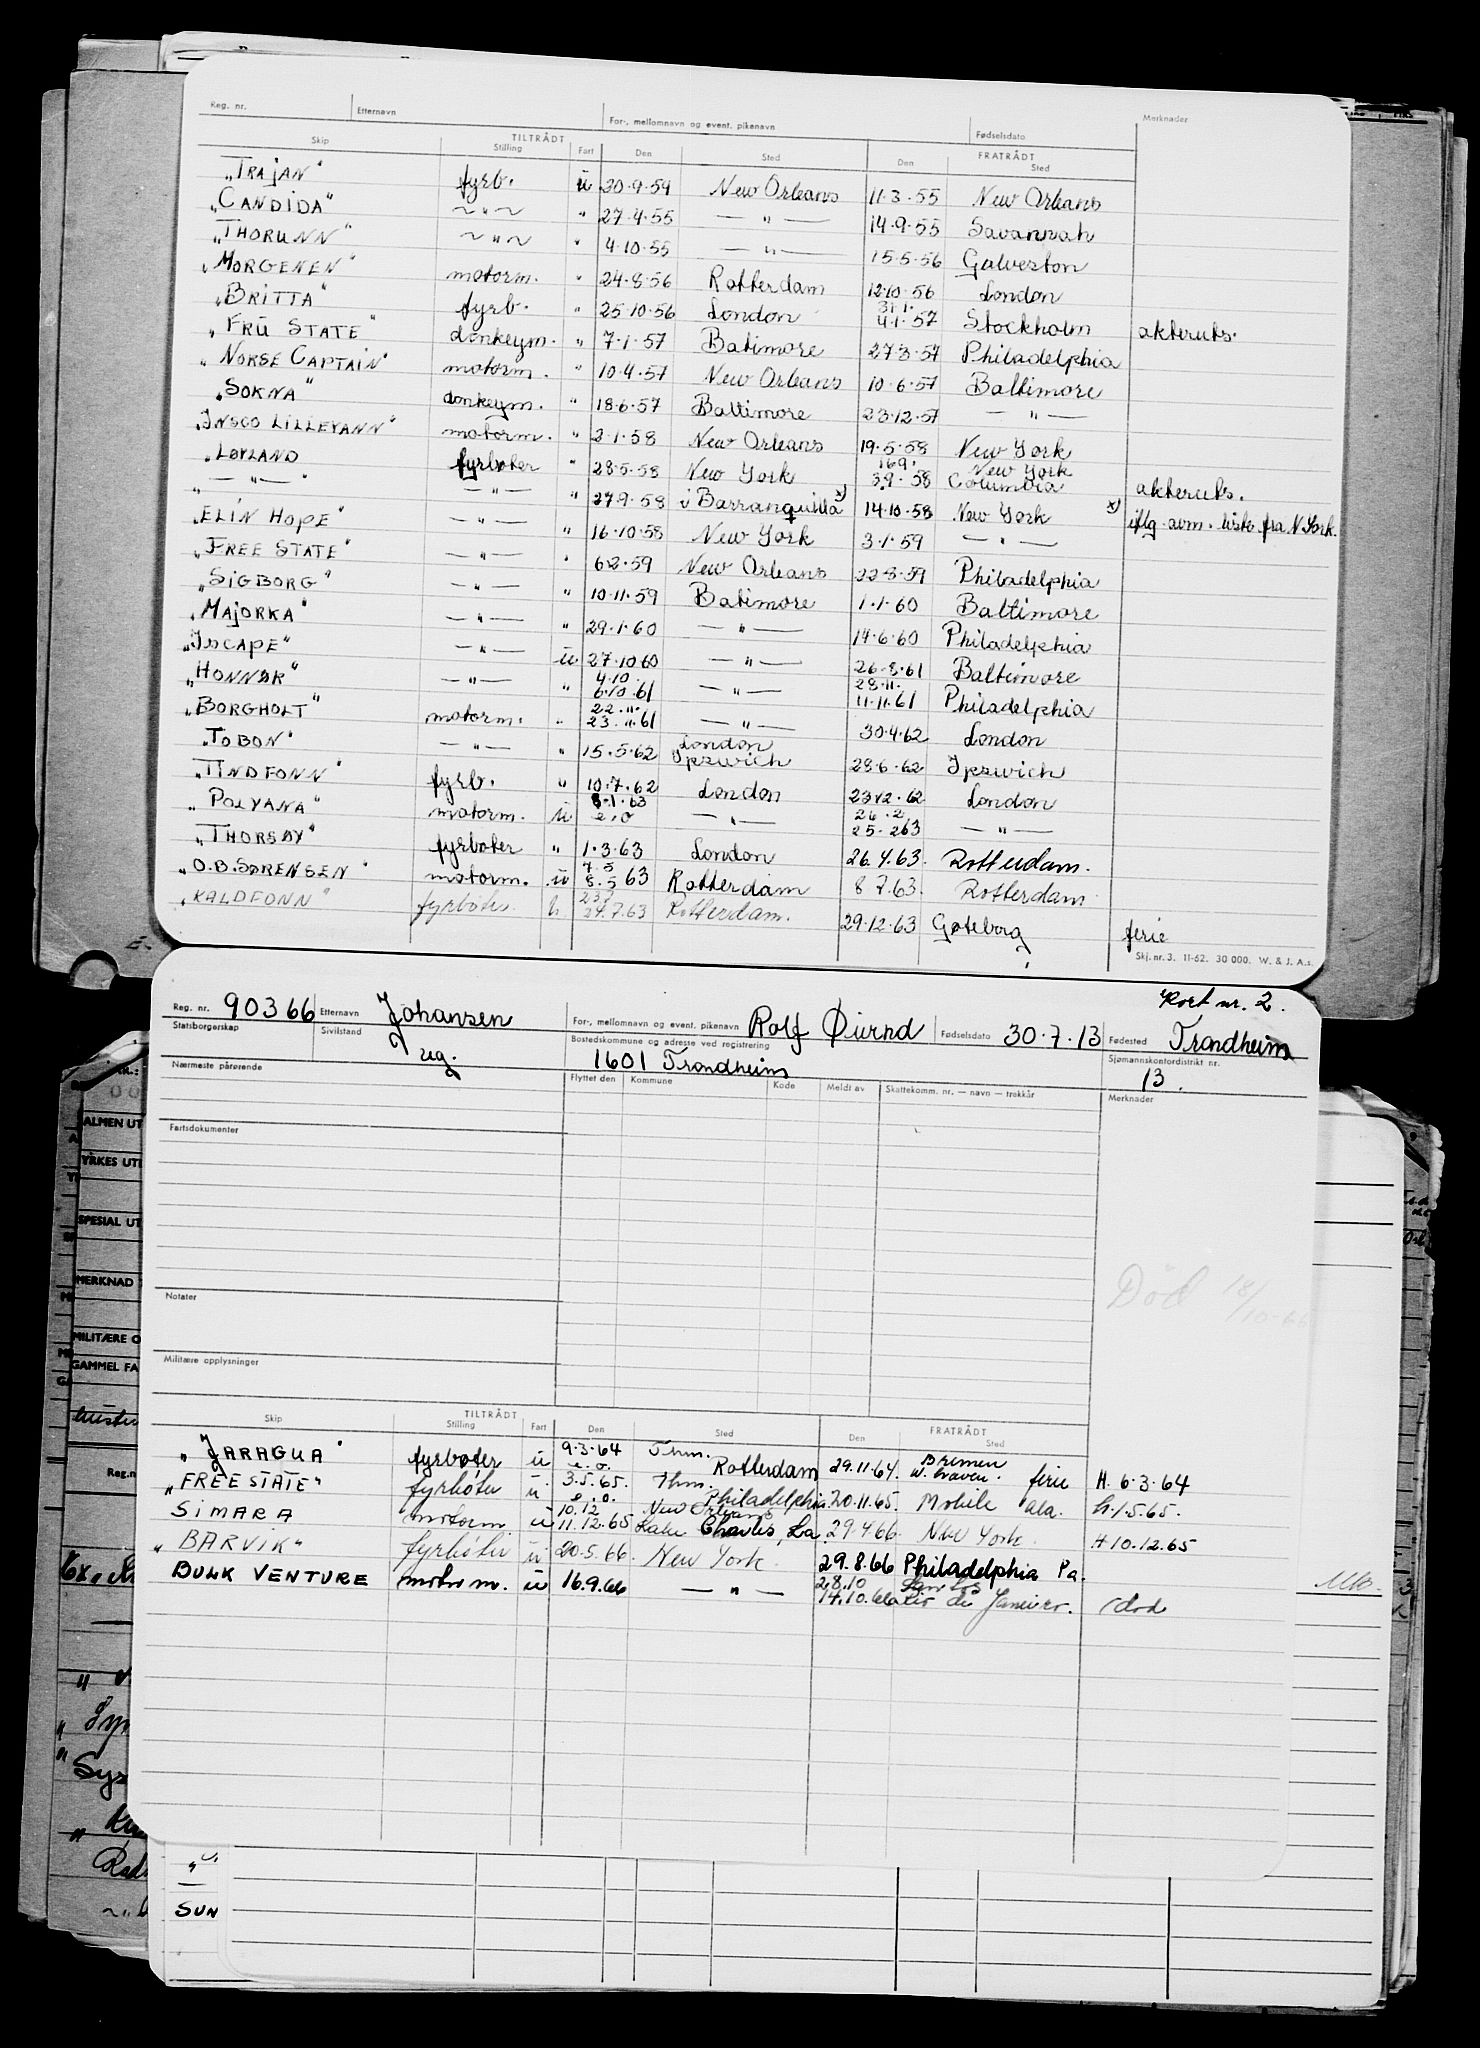 Reg. nr. Etternavn For-, mellomnavn og event. pikenavn Fødselsdato Merknader
TILTRÅDT FRATRÅDT
Skip Stilling Fart Den Sted Den Sted
„TRAJAN" fyrb. u 30.9.54 New Orleans 11.3.55 New Orleans
„CANDIDA" ~ " ~ " 27.4.55 — " — 14.9.55 Savannah
„THORUNN" ~ " ~ " 4.10.55 — " — 15.5.56 Galveston
„MORGENEN" motorm. " 24.8.56 Rotterdam 12.10.56 London
„BRITTA" fyrb. " 25.10.56 London 31.1. 4.1.57 Stockholm akteruts.
„FRU STATE" donkeym. " 7.1.57 Batimore 27.3.57 Philadelphia
„NORSE CAPTAIN" motorm. " 10.4.57 New Orleans 10.6.57 Baltimore
„SOKNA" donkeym. " 18.6.57 Baltimore 23.12.57 — " —
„INSCO LILLEVANN" motorm. " 2.1.58 New Orleans 19.5.58 New York
„LØVLAND fyrbøter " 28.5.58 New York 16.9. 3.9.58 New York Columbia akteruts.
„— " —" — " — " 27.9.58 i Barranquilla x) 14.10.58 New York x) iflg. avm. liste fra N.York.
„ELIN HOPE" — " — " 16.10.58 New York 3.1.59 — " —
„FREE STATE" — " — " 6.2.59 New Orleans 22.8.59 Philadelphia
„SIGBORG" — " — " 10.11.59 Batimore 1.1.60 Baltimore
„MAJORKA" — " — " 29.1.60 — " — 14.6.60 Philadelphia
„IDCAPE" — " — u 27.10.60 — " — 26.8.61 Baltimore
„HONNØR" — " — " 4.10. 6.10.61 — " — 28.11. 11.11.61 Philadelphia
„BORGHOLT" motorm. " 22.11. 23.11.61 — " — 30.4.62 London
„TOBON" — " — " 15.5.62 London Ipswich 28.6.62 Ipswich
„TINDFONN" fyrb. " 10.7.62 London 23.12.62 London
„POLYANA" motorm. u 8.1.63 e.o — " — 26.2 25.2.63 — " —
„THORSØY" fyrbøter " 1.3.63 London 26.4.63. Rotterdam.
„O.B.SØRENSEN" motorm. u 7.5 8.5 63 Rotterdam 8 7.63. Rotterdam
„KALDFONN" fyrbøter. u 23.7 24.7.63 Rotterdam. 29.12.63 Gøteborg ferie
E.
Skj. nr. 3. 11-62. 30 000. W. & J. A.s.
Kort nr. 2.
Reg. nr. 90366 Etternavn Johansen For-, mellomnavn og event. pikenavn Rolf Øivind Fødselsdato 30.7.13 Fødested Trondheim
Statsborgerskap Sivilstand ug. Bostedskommune og adresse ved registrering 1601 Trondheim Sjømannskontordistrikt nr. 13.
Nærmeste pårørende Flyttet den Kommune Kode Meldt av Skattekomm. nr. — navn — trekkår Merknader
Fartsdokumenter
Død 18/10-66
Notater
Militære opplysninger
TILTRÅDT FRATRÅDT
Skip Stilling Fart Den Sted Den Sted
„JARAGUA" fyrbøter u 9.3.64 e.o. Thm. Rotterdam 29.11.64. Bremen W. haven. ferie H. 6.3.64
„FREESTATE" fyrbøter u. 3.5.65. e.o. Thm. Philadelphia 20.11.65. Mobile ala. H.1.5.65.
SIMARA motorm. u 10.12 11.12.65 New Orleans Lake Charles, La 29.4.66. New York. H 10.12.65
„BARVIK" fyrbøter u 20.5.66. New York. 29.8.66 Philadelphia Pa.
BULK VENTURE motorm. u 16.9.66 — " — 28.10 14.10.66 Santos Rio de Janeiro. død
ALMEN UT
YRKES UT
SPESIAL UT
MERKNAD
MILITÆRE O
GAMMEL FA
Reg.n
SUN